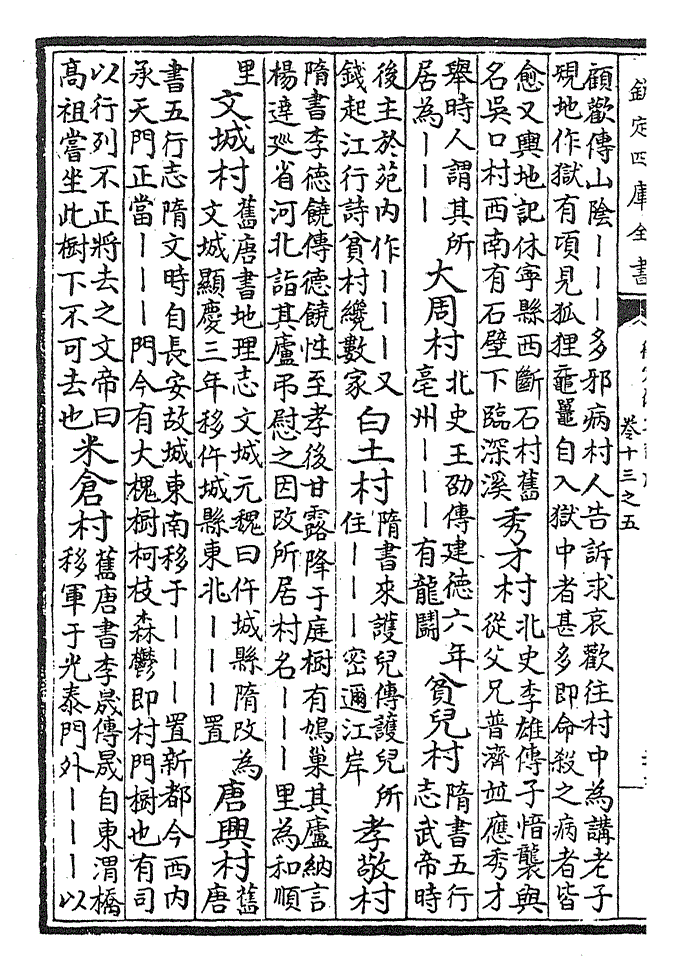 欽定四庫全書
卷十三之五
顧歡傳山陰｜｜｜多邪病村人告訴求哀歡往村中為講老子
規地作獄有頃見狐狸黿鼉自入獄中者甚多即命殺之病者皆
愈又輿地記休寧縣西斷石村舊
名吳口村西南有石壁下臨深溪
秀才村
北史李雄傳子愔襲與
從父兄普濟竝應秀才
舉時人謂其所
居為｜｜｜
大周村
北史王劭傳建德六年
亳州｜｜｜有龍鬭
貧兒村
隋書五行
志武帝時
後主於苑内作｜｜｜又
錢起江行詩貧村纔數家
白土村
隋書來護兒傳護兒所
住｜｜｜密邇江岸
孝敬村
隋書李德饒傳德饒性至孝後甘露降于庭樹有鳩巢其廬納言
楊達廵省河北詣其廬弔慰之因改所居村名｜｜｜里為和順
里
文城村
舊唐書地理志文城元魏曰仵城縣隋改為
文城顯慶三年移仵城縣東北｜｜｜置
唐興村
舊
唐
書五行志隋文時自長安故城東南移于｜｜｜置新都今西内
承天門正當｜｜｜門今有大槐樹柯枝森鬱即村門樹也有司
以行列不正將去之文帝曰
高祖嘗坐此樹下不可去也
米倉村
舊唐書李晟傳晟自東渭橋
移軍于光泰門外｜｜｜以